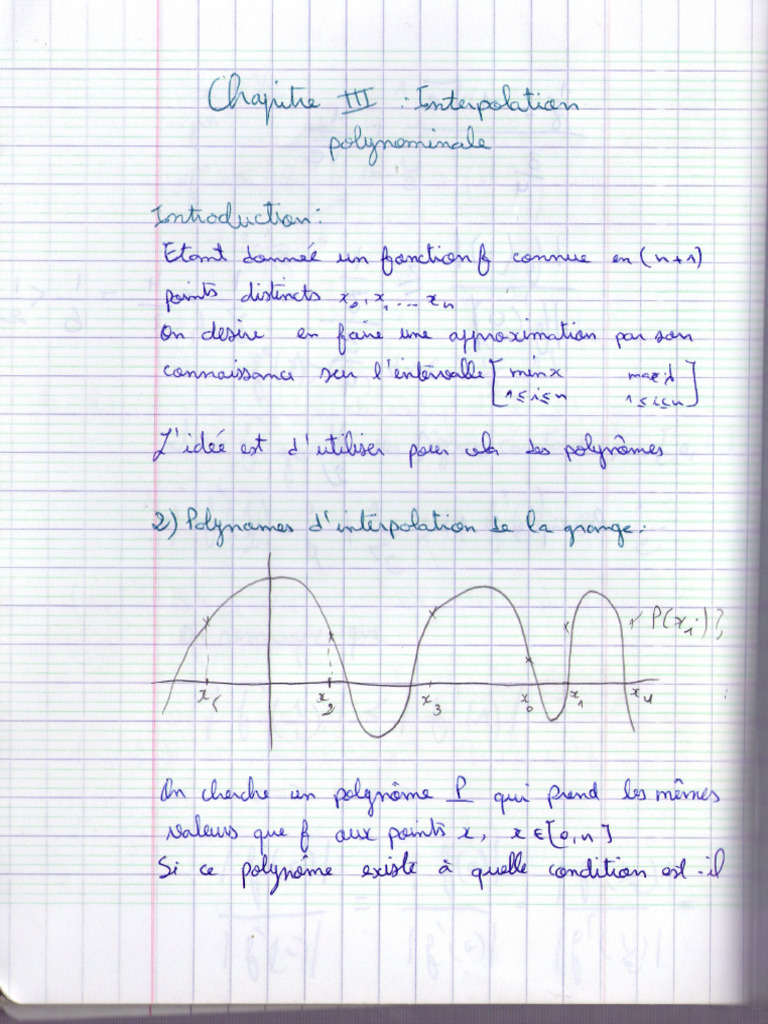 Chapitre III : Interpolation
polynominale
Introduction :
Etant donnée un fonction f connue en (n+1)
points distincts x₀, x₁ ... xₙ
On desire en faire une approximation par son
connaissance sur l'intervalle [min x max x]
1≤i≤n 1≤i≤n
L'idée est d'utiliser pour cela des polynômes
2) Polynomes d'interpolation de la grange :
P(xᵢ) ?
x₂ x₃ x₀ x₁ x₄
On cherche un polynôme P qui prend les mêmes
valeurs que f aux points x, x ∈ [0, n]
Si ce polynôme existe à quelle condition est-il